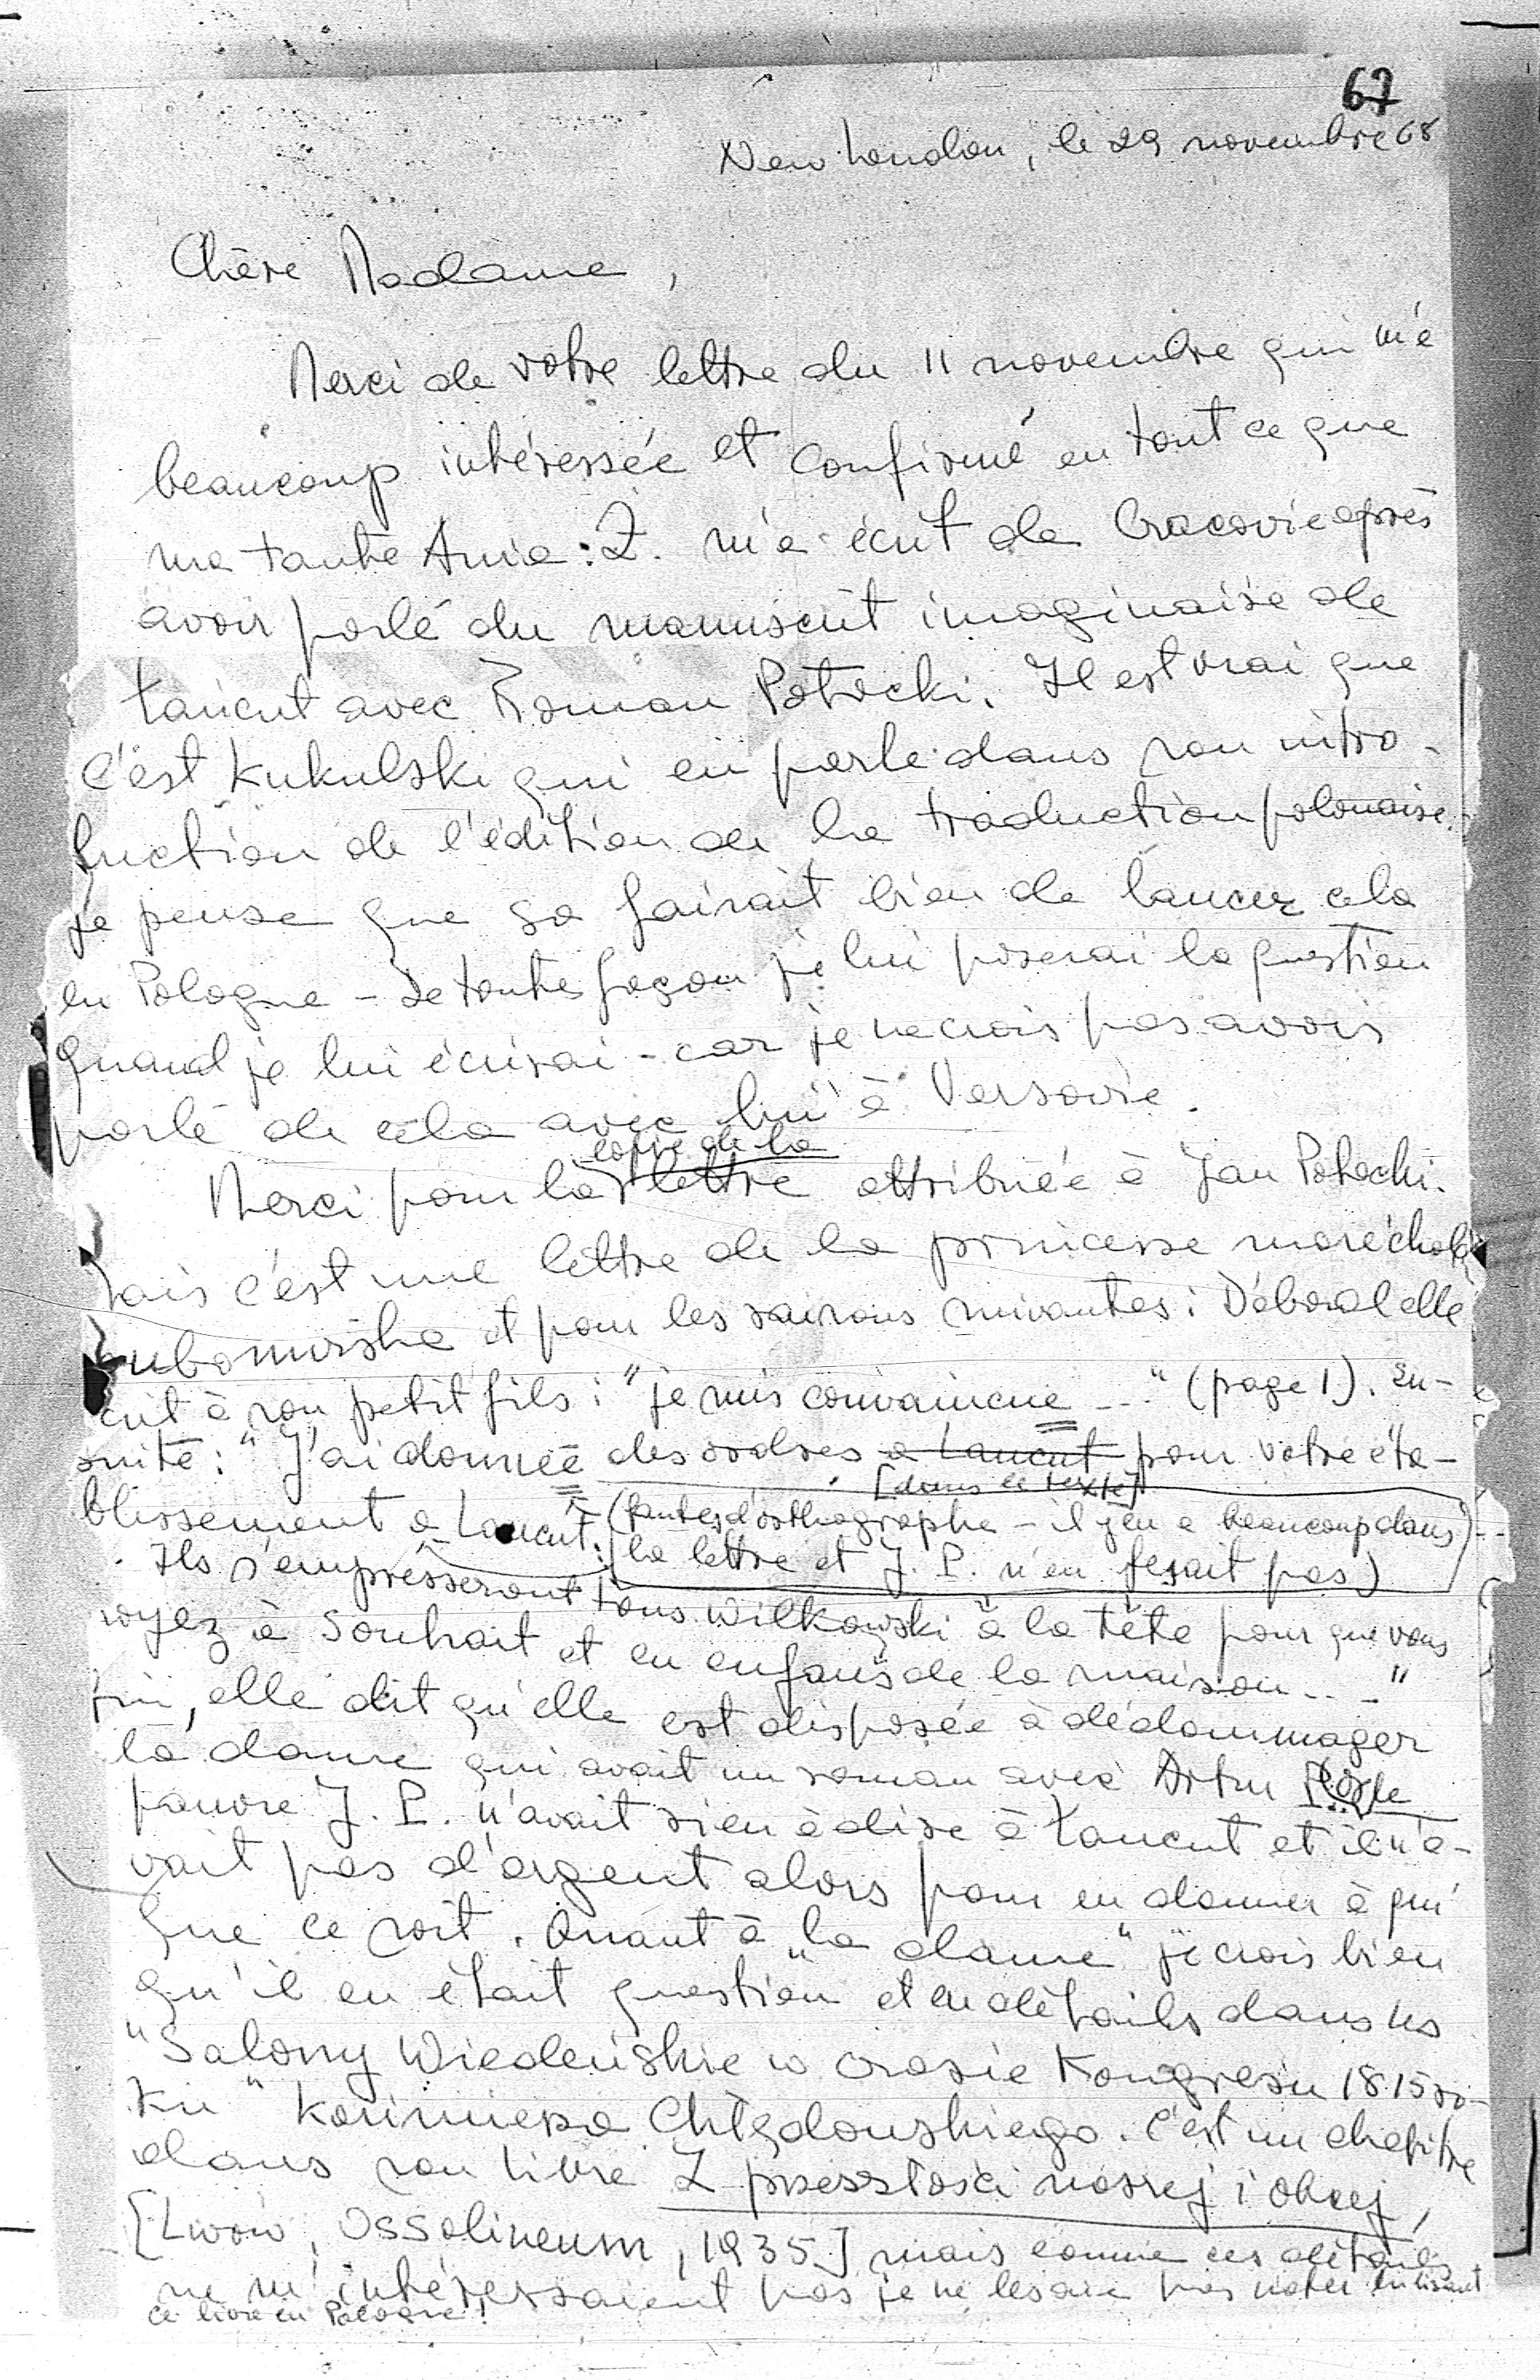 67
New London, le 29 novembre 68
Chère Madame,
Merci de votre lettre du 11 novembre qui m'a
beaucoup intéressée et confirmé en tout ce que
ma tante Ania Z. m'a écrit de Cracovie après
avoir parlé du manuscrit imaginaire de
Łańcut avec Roman Potocki. Il est vrai que
c'est Kukulski qui en parle dans son intro-
duction de l'édition de la traduction polonaise.
je pense que ça fairait bien de lancer cela
en Pologne - De toutes façon je lui poserai la question
quand je lui écrirai - car je ne crois pas avoir
parlé de cela avec lui à Varsovie.
copie de la
Merci pour la lettre attribuée à Jan Potocki.
Mais c'est une lettre de la princesse maréchale
Lubomirska et pour les raisons suivantes: D'abord elle
écrit à son petit fils: "je suis convaincue ..." (page 1). En-
suite: "J'ai donnée des ordres a Lancut pour votre éta-
[dans le texte]
blissement a Lancut. (fautes d'orthographe - il y en a beaucoup dans
la lettre et J. P. n'en fesait pas)
Ils s'empresseront tous Wilkowski à la tête pour que vous
soyez à souhait et en enfans de la maison..."
fin, elle dit qu'elle est disposée à dédommager
la dame qui avait un roman avec Artur Or le
pauvre J. P. n'avait rien à dire à Łancut et il n'a-
vait pas d'argent alors pour en donner à qui
que ce soit. Quant à "la dame" je crois bien
qu'il en était question et en détails dans les
"Salony Wiedeńskie w czasie Kongresu 1815 ro-
ku" Kazimierza Chłędowskiego. C'est un chapitre
dans son livre Z przeszłości naszej i obcej,
[Lwów, Ossolineum, 1935] mais comme ces détails
ne m'intéressaient pas je ne les aie pas noter en lisant
ce livre en Pologne!